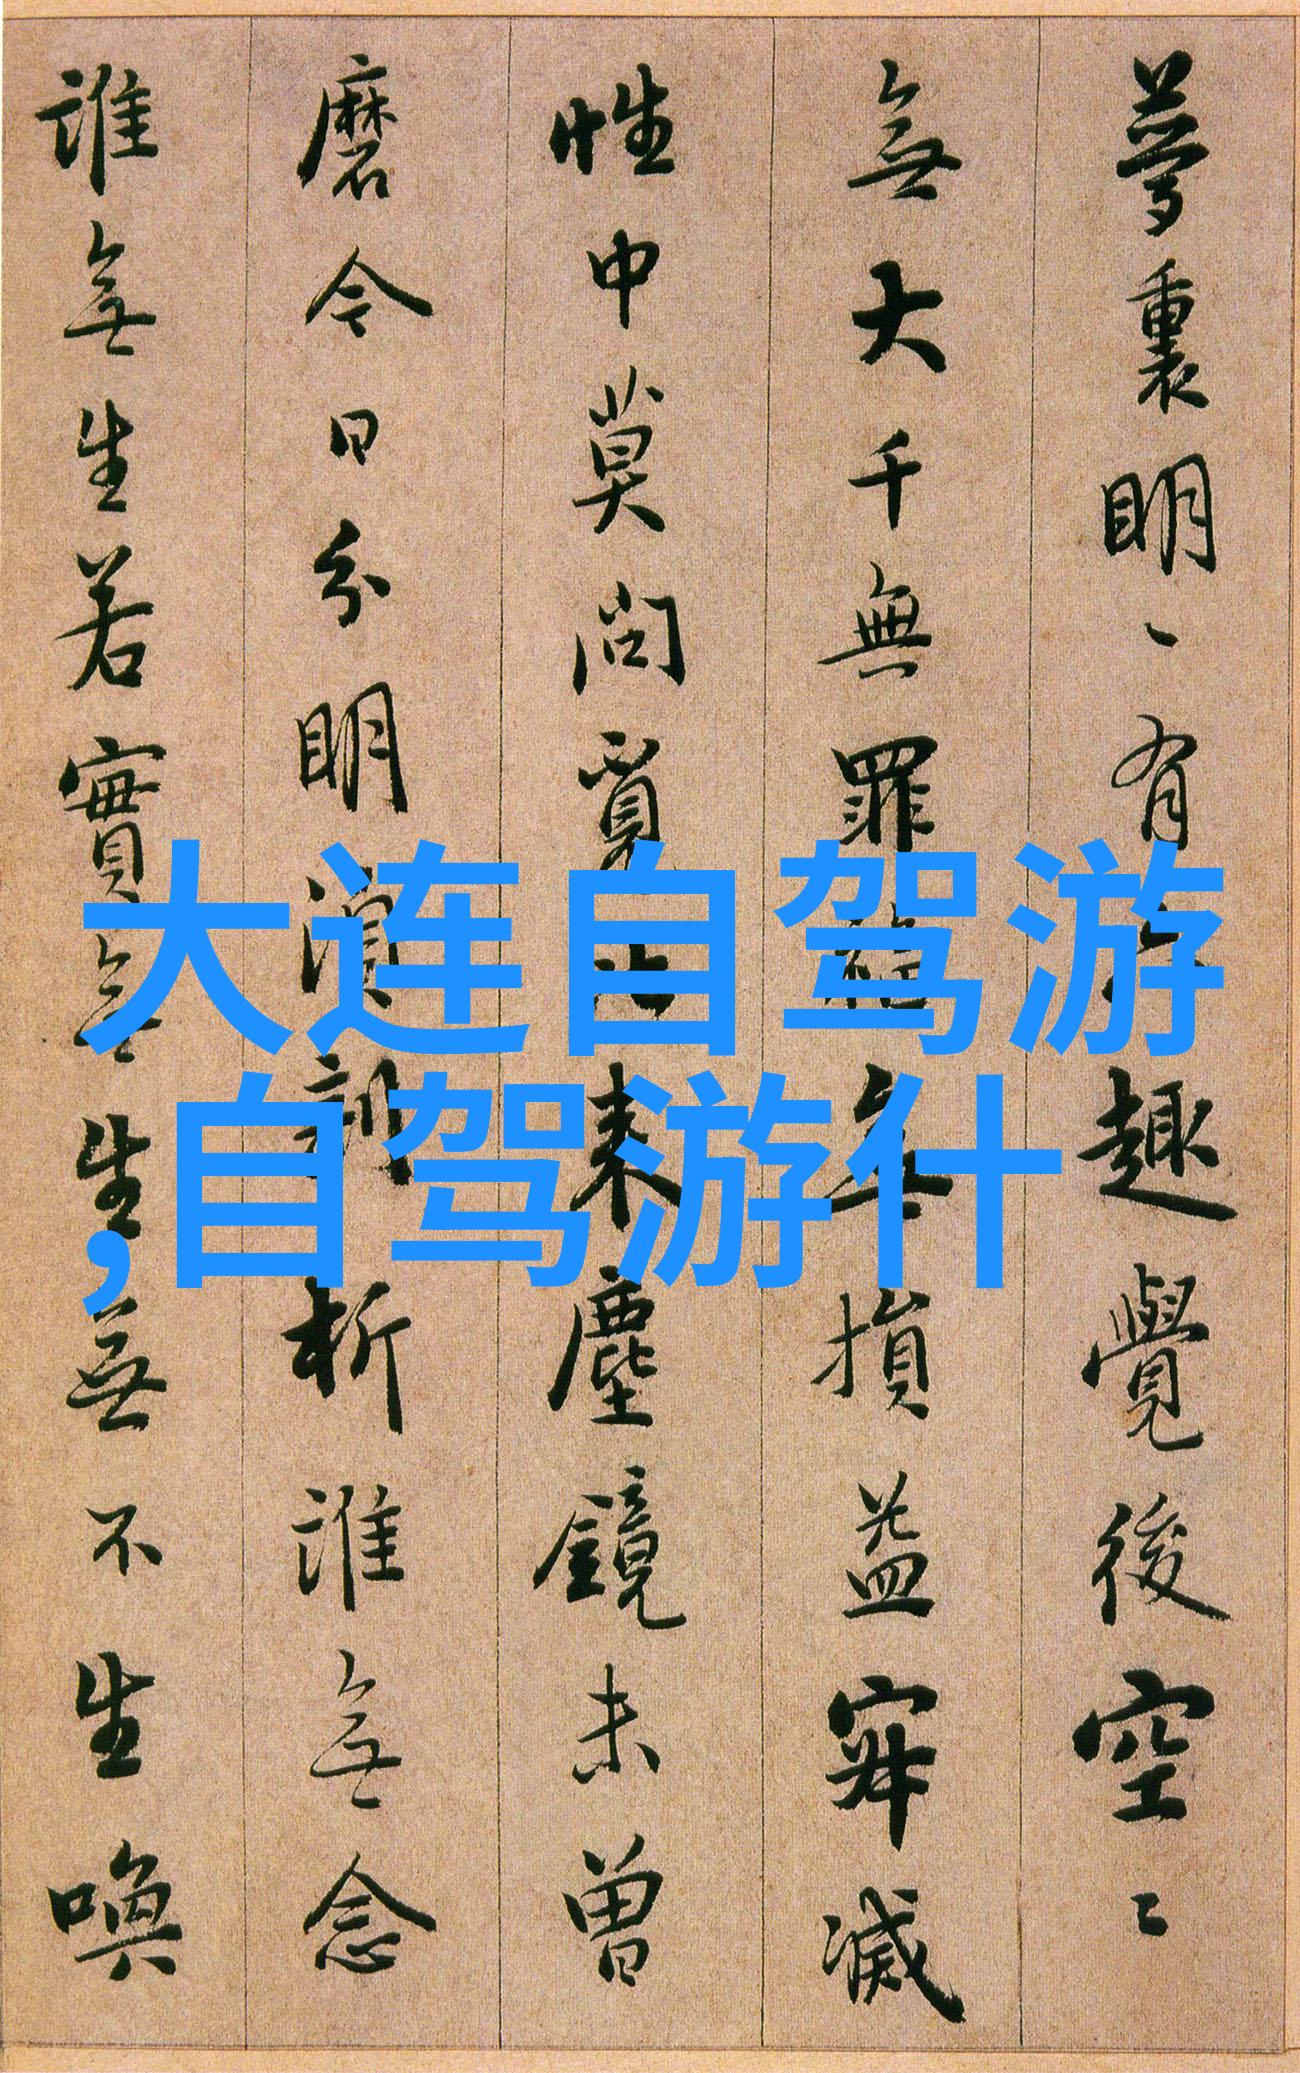 夢裏明〻有六趣覺後空〻
無大千無罪福無損益寂滅
性中莫問覓比來塵鏡未曾
磨今日分明須剖析誰無念
誰無生若實無生無不生喚
大连自驾游
,自驾游什